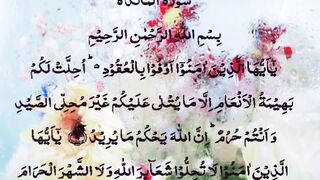 سُورَةُ الْمَائِدَة
بِسْمِ اللّٰهِ الرَّحْمٰنِ الرَّحِيْمِ
يٰٓاَيُّهَا الَّذِيْنَ اٰمَنُوْٓا اَوْفُوْا بِالْعُقُوْدِ ؕ اُحِلَّتْ لَكُمْ
بَهِيْمَةُ الْاَنْعَامِ اِلَّا مَا يُتْلٰى عَلَيْكُمْ غَيْرَ مُحِلِّى الصَّيْدِ
وَاَنْتُمْ حُرُمٌ ؕ اِنَّ اللّٰهَ يَحْكُمُ مَا يُرِيْدُ ۝ يٰٓاَيُّهَا
الَّذِيْنَ اٰمَنُوْا لَا تُحِلُّوْا شَعَآئِرَ اللّٰهِ وَلَا الشَّهْرَ الْحَرَامَ